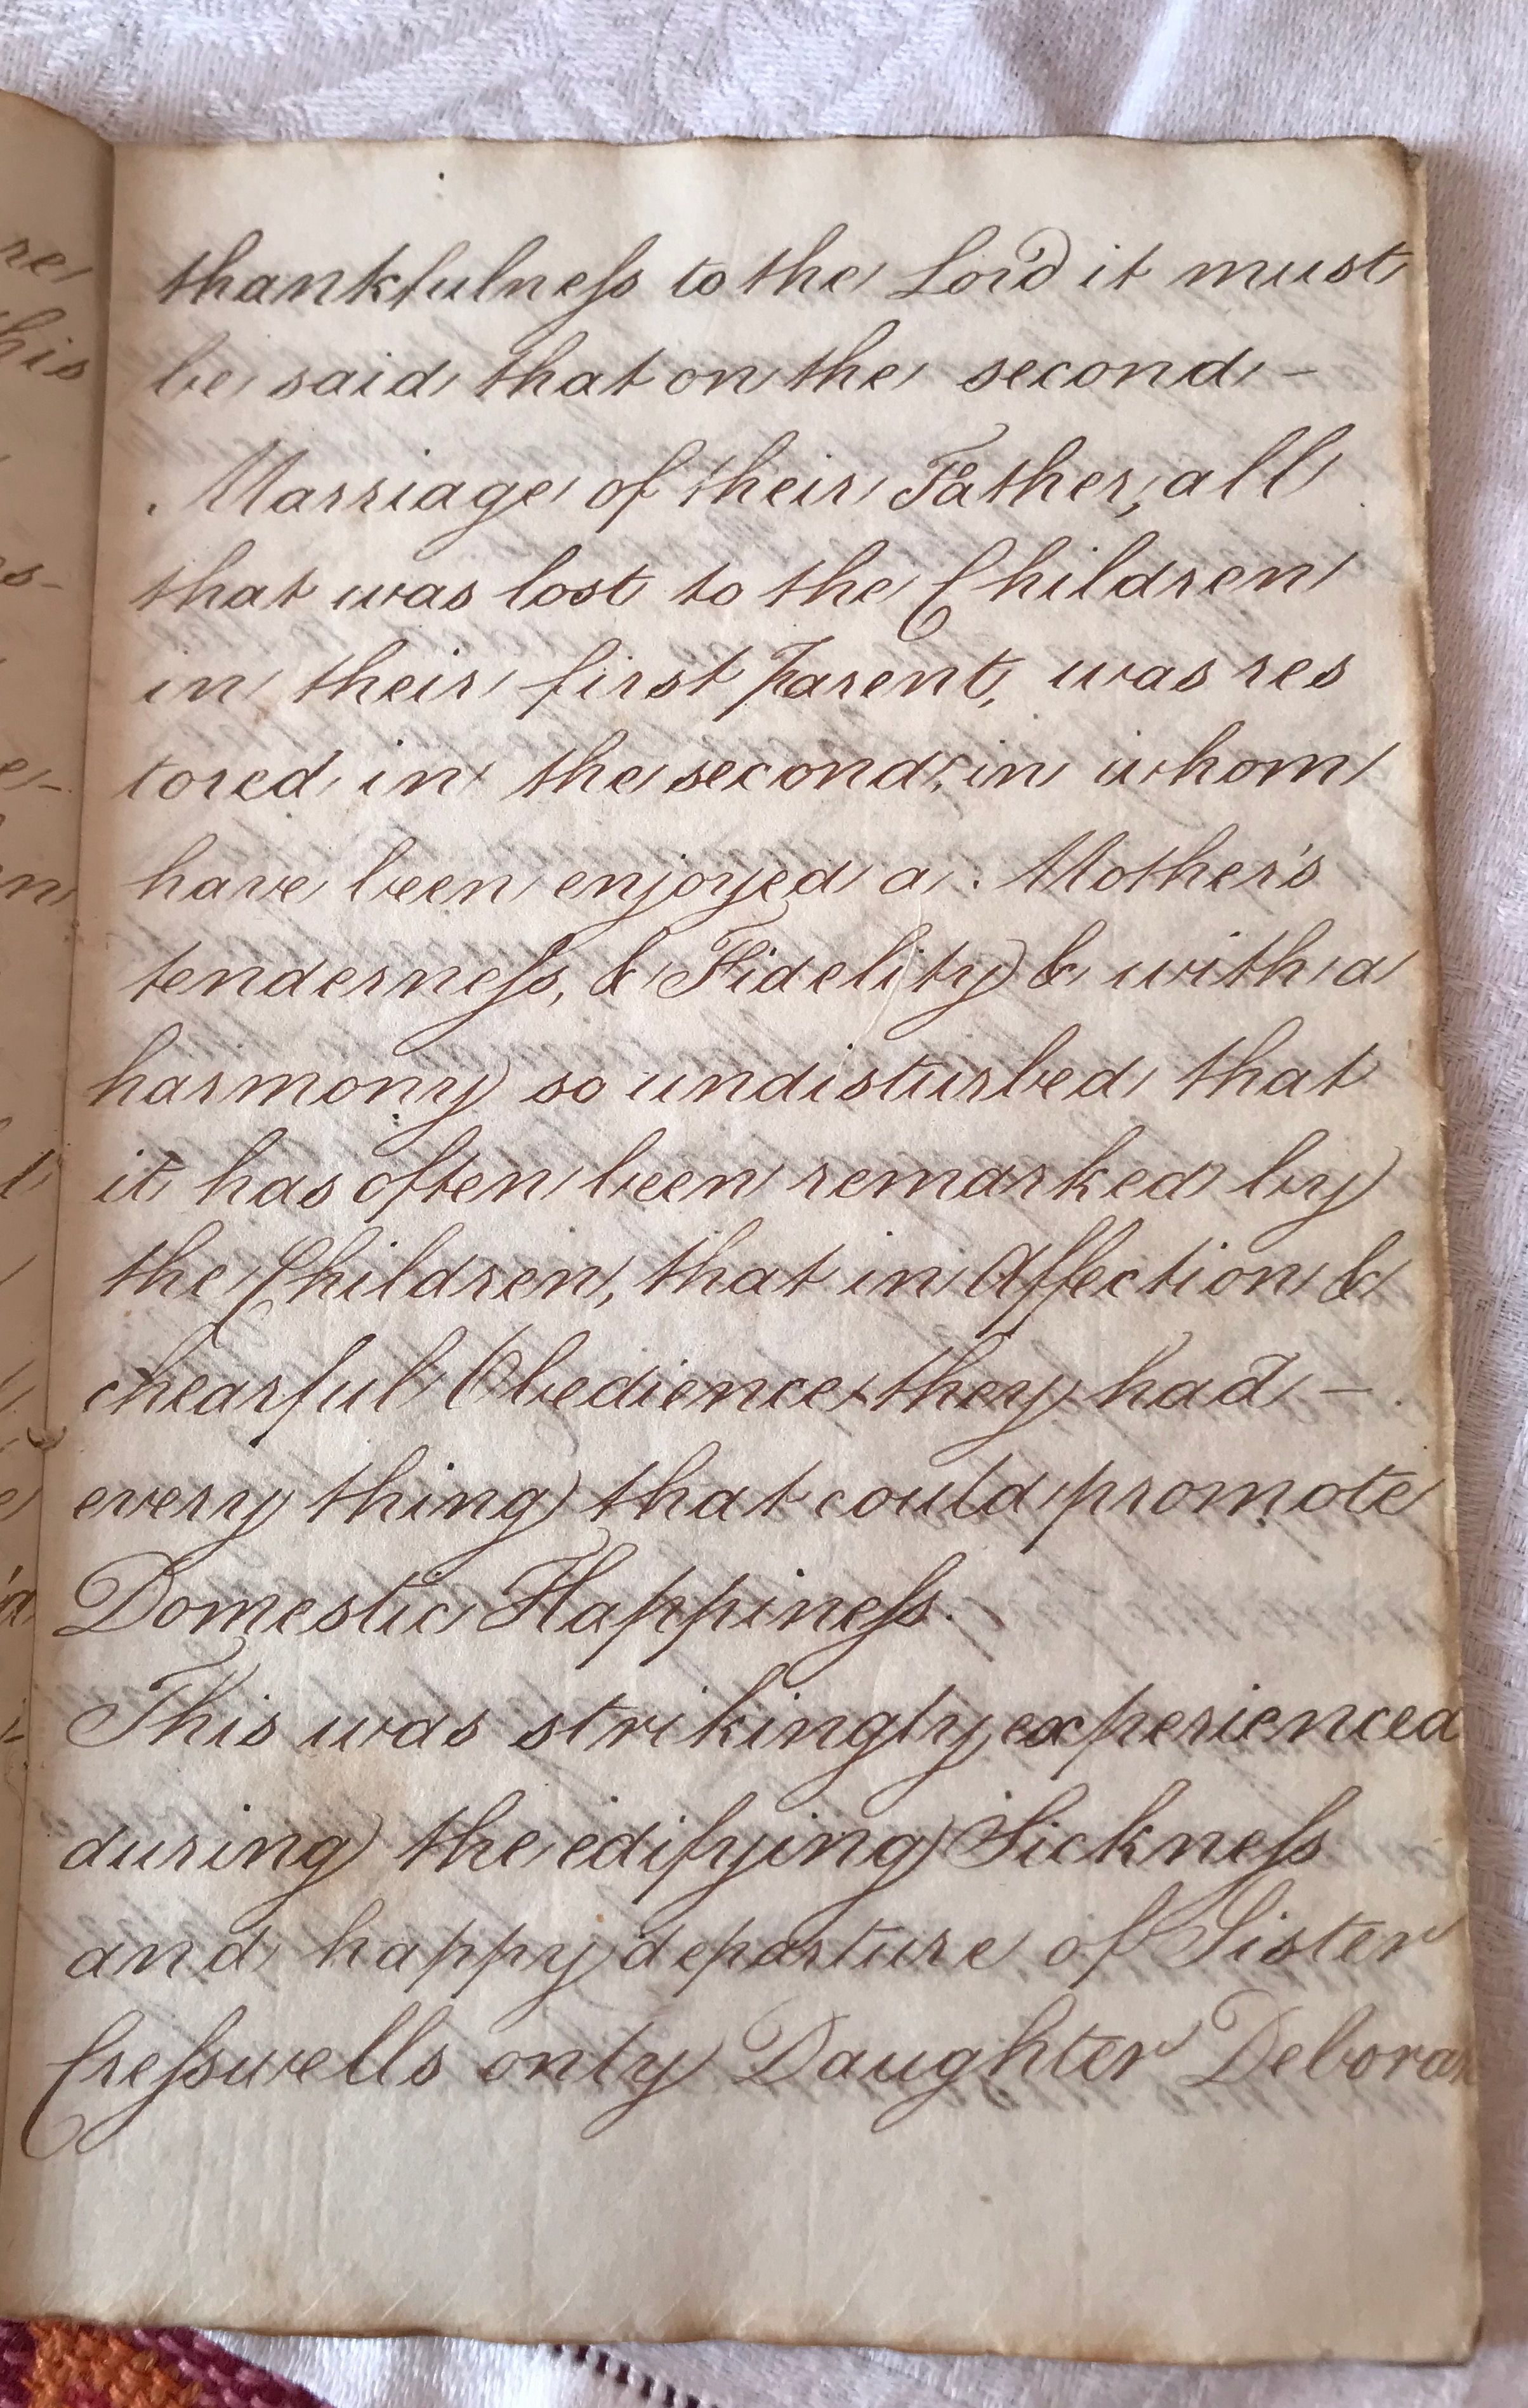 thankfulneſs to the Lord it must
be said that on the second –
Marriage of their Father, all
that was lost to the Children
in their first Parent, was res
tored in the second, in whom
have been enjoyed a Mother's
tenderneſs, & Fidelity & with a
harmony so undisturbed that
it has often been remarked by
the Children, that in Affection &
chearful Obedience they had –
every thing that could promote
Domestic Happineſs. –
This was strikingly experienced
during the edifying Sickneſs
and happy departure of Sister
Creſswells only Daughter Deborah